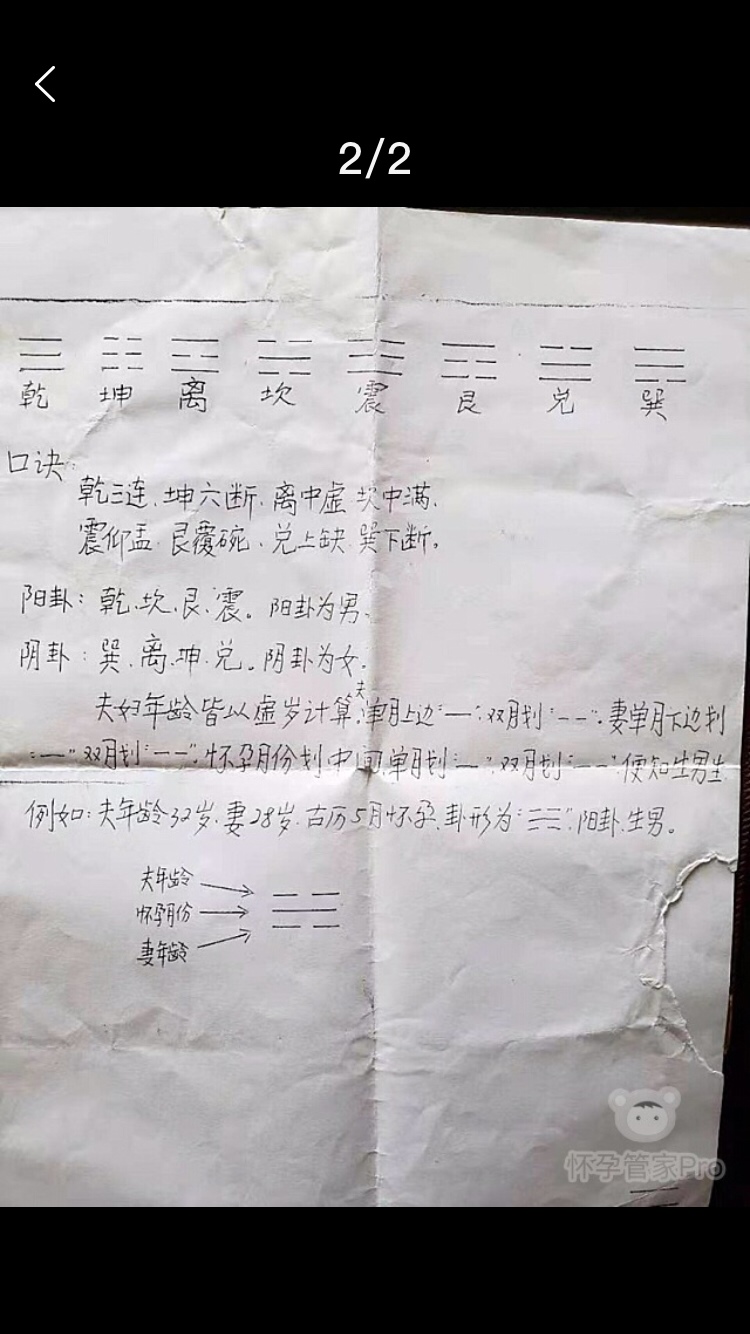 2/2
乾 坤 离 坎 震 艮 兑 巽
口诀:
乾三连、坤六断、离中虚、坎中满、
震仰盂、艮覆碗、兑上缺、巽下断。
阳卦:乾、坎、艮、震。阳卦为男、
阴卦:巽、离、坤、兑。阴卦为女。
夫妇年龄皆以虚岁计算,夫单月上边"—",双月划"--"。妻单月下边划
"—"双月划"--"。怀孕月份划中间,单月划"—",双月划"--",便知生男生
例如:夫年龄32岁、妻28岁、古历5月怀孕、卦形为"☵",阳卦、生男。
夫年龄
怀孕月份
妻年龄
怀孕管家Pro